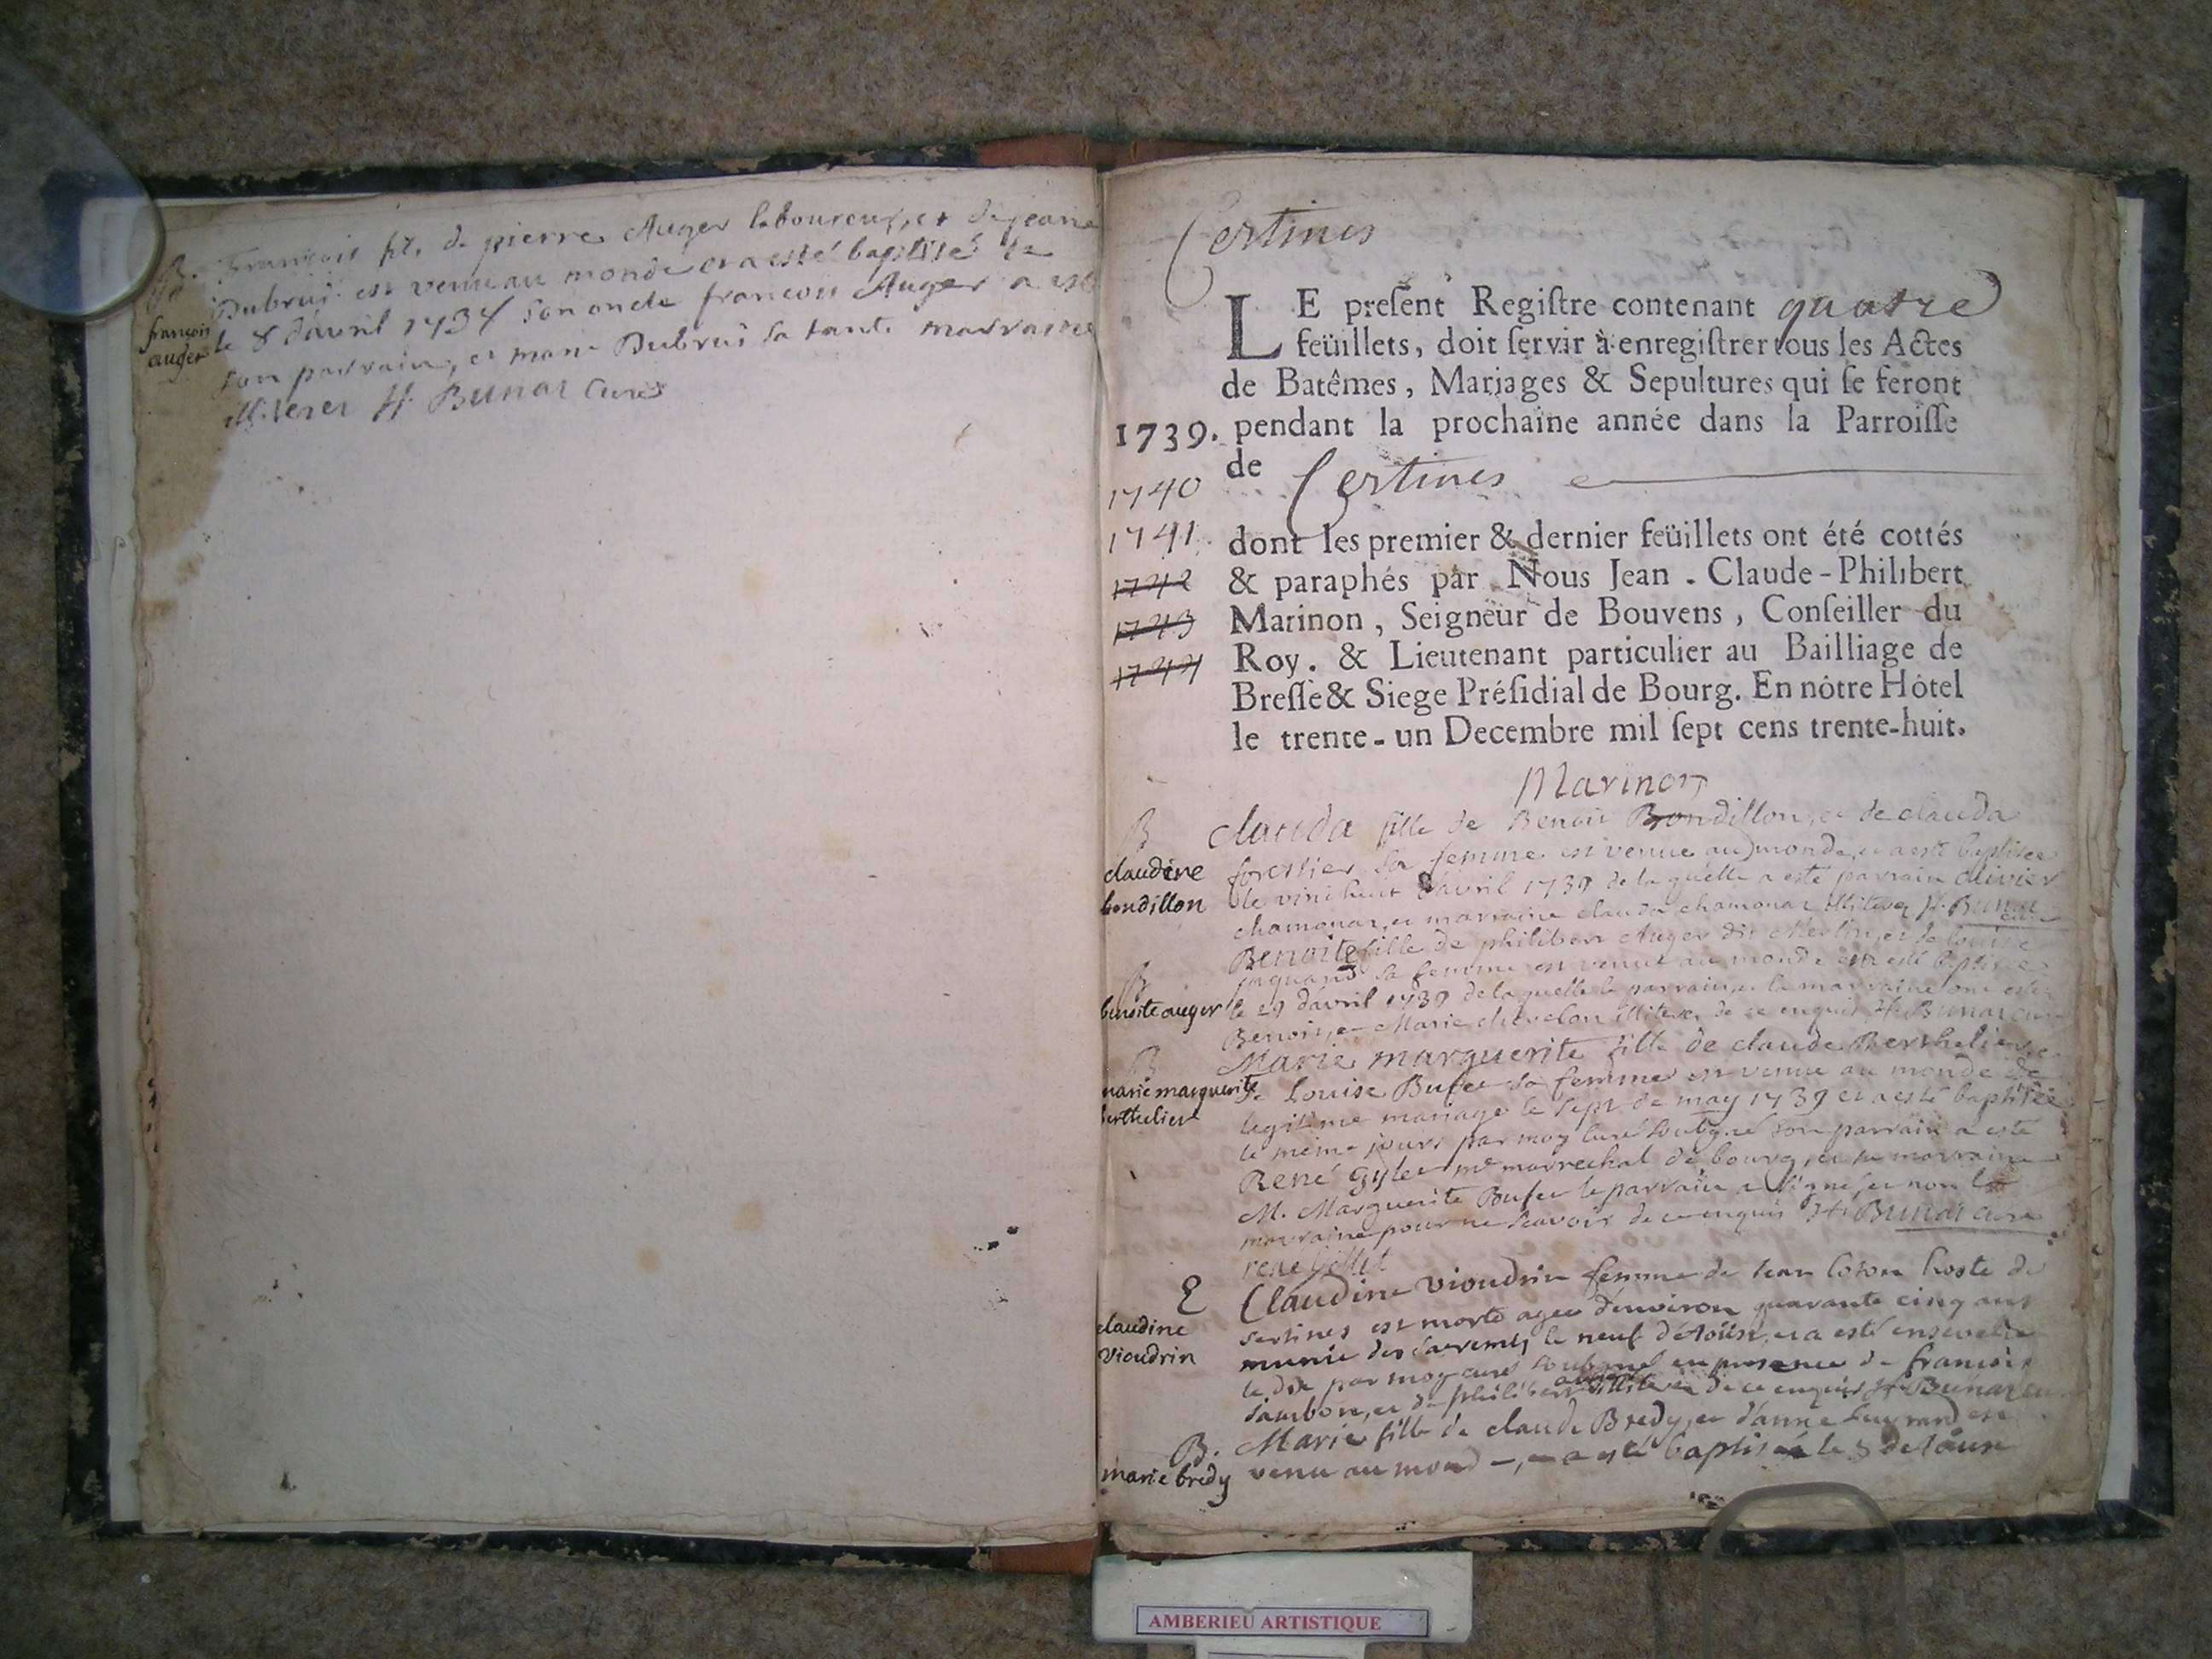 B. François fils de pierre Auger laboureur, et de jeane
Dubrui est venu au monde et a esté baptisé
françois
auger
le 8 d'avril 1734 son oncle françois Auger a esté
son parrain, et marie Dubrui sa tante marraine
illiterez H. Bunar Curé
Certines
LE preſent Regiſtre contenant quatre
feüillets, doit ſervir à enregiſtrer tous les Actes
de Batêmes, Mariages & Sepultures qui ſe feront
1739. pendant la prochaine année dans la Parroiſſe
de Certines
1740
1741. dont les premier & dernier feüillets ont été cottés
1742 & paraphés par Nous Jean - Claude-Philibert
1743 Marinon, Seigneur de Bouvens, Conſeiller du
1744 Roy. & Lieutenant particulier au Bailliage de
Breſſe & Siege Préſidial de Bourg. En nôtre Hôtel
le trente-un Decembre mil ſept cens trente-huit.
Marinon
B
claudine
bondillon
Clauda fille de Benoit Bondillon, et de clauda
forestier sa femme est venue au monde, et a esté baptisée
le vinthuit d'avril 1739 de laquelle a esté parrain olivier
chamonar, et marraine clauda chamonar illiterez H. Bunar
curé
B
benoite auger
Benoite fille de philibert Auger dit Merlin, et de louise
sa femme est venue au monde et a esté baptisée
le 29 d'avril 1739 de laquelle le parrain, et la marraine ont esté
Benoit, et Marie chevelon illiterez de ce enquis H. Bunar curé
B
marie marguerite
berthelier
Marie marguerite fille de claude Berthelier, et
de Louise Bufet sa femme est venue au monde de
legitime mariage le sept de may 1739 et a esté baptisée
le meme jours par moy curé soubigné son parrain a esté
René Gylet me marrechal de bourg, et sa marraine
M. Marguerite Bufet le parrain a signé, et non la
marraine pour ne scavoir de ce enquis H. Bunar curé
rene Gillet
E
claudine
vioudrin
Claudine vioudrin femme de jean hoste de
sertines est morte agee d'environ quarante cinq ans
munie des sacremts le neuf d'Aoust, et a esté ensevelie
le dix par moy curé soubigné en presence de francois
jambon, et de philibert auger illiterez de ce enquis H. Bunar cu
B.
marie bredy
Marie fille de claude Bredy, et d'anne est
venu au monde, et a esté baptisée le 8
AMBERIEU ARTISTIQUE